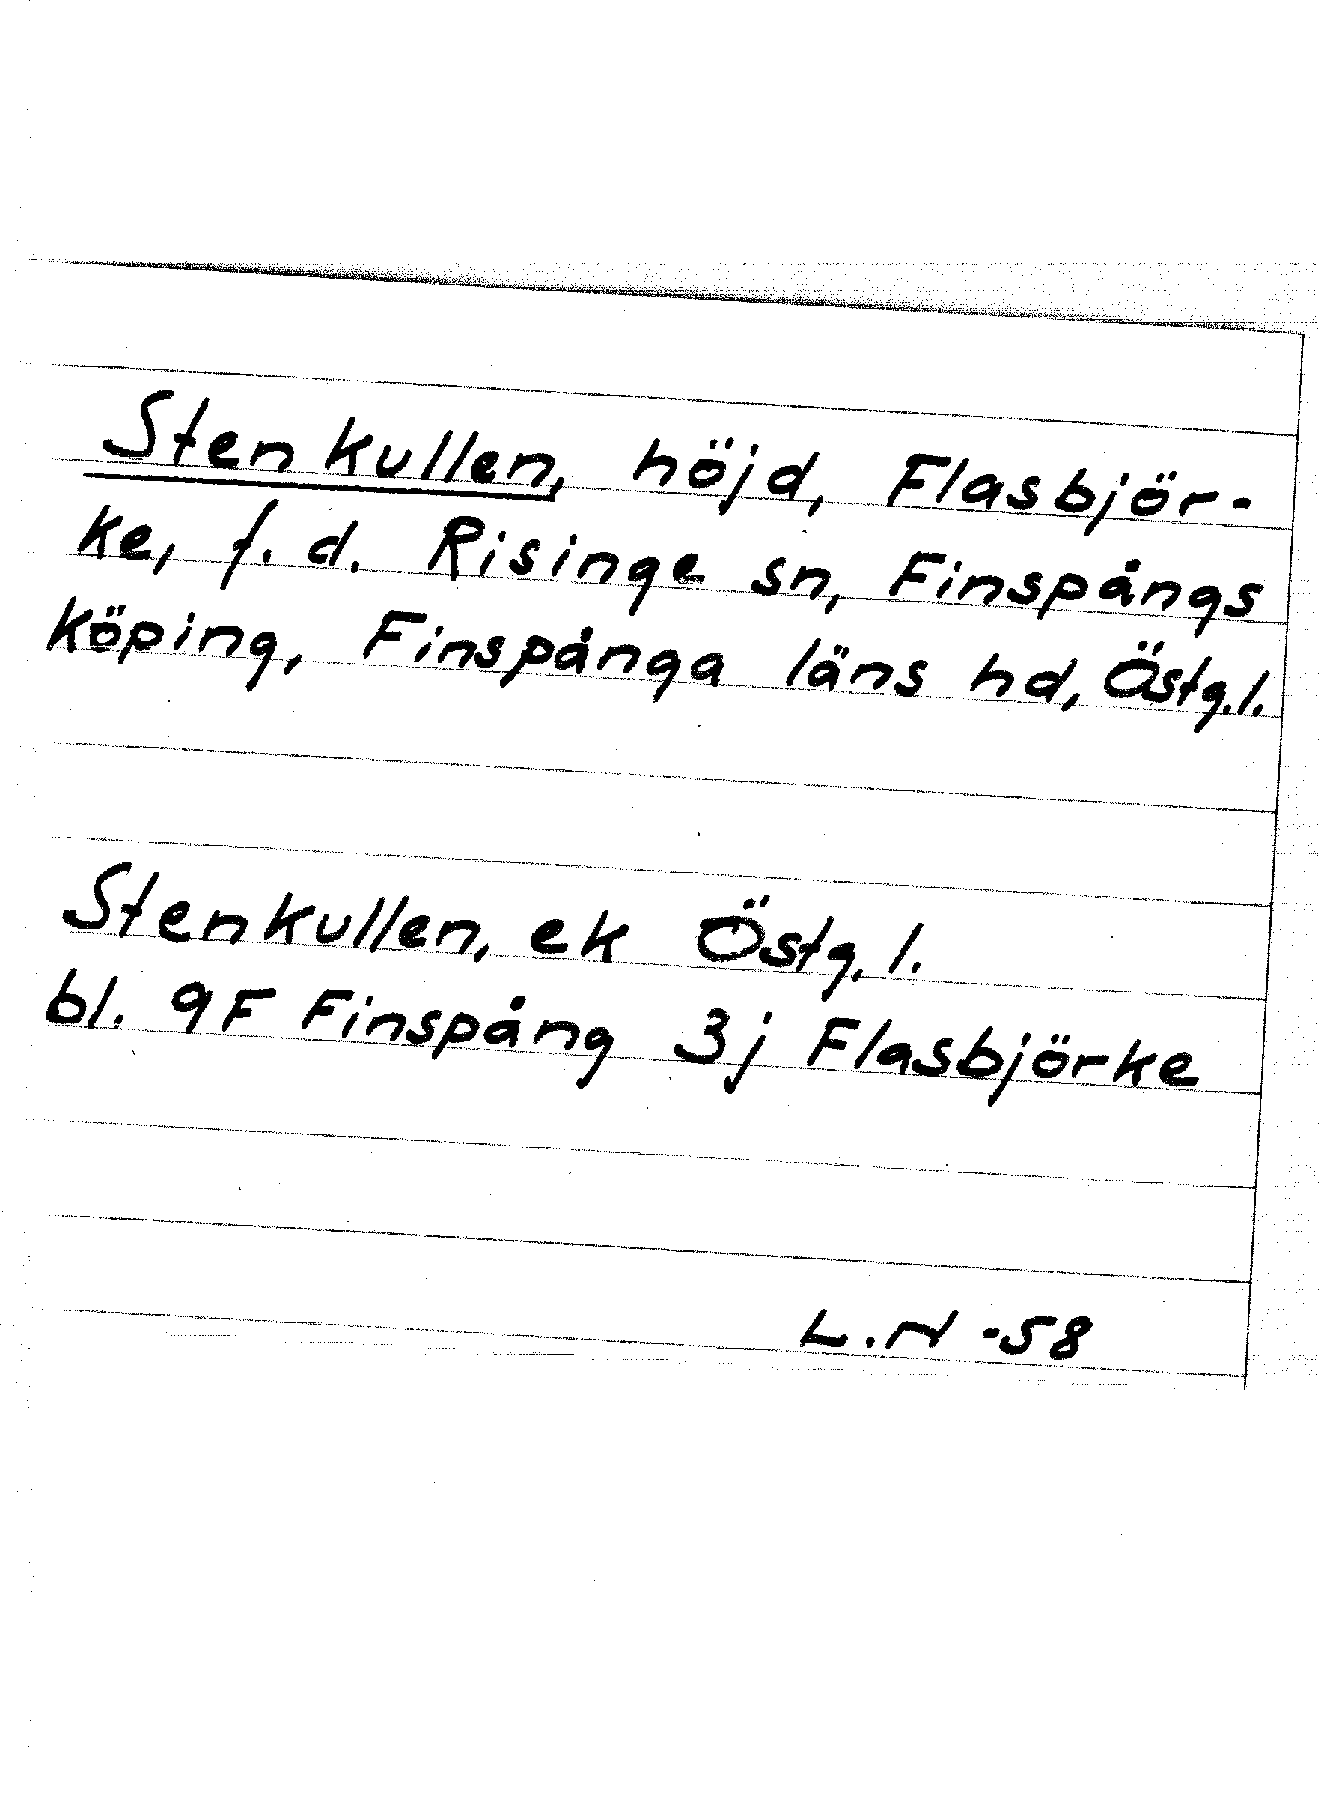 Stenkullen, höjd, Flasbjör-
ke, f. d. Risinge sn, Finspångs
köping, Finspånga läns hd, Östg. l.
Stenkullen, ek Östg. l.
bl. 9F Finspång 3j Flasbjörke
L.N -58